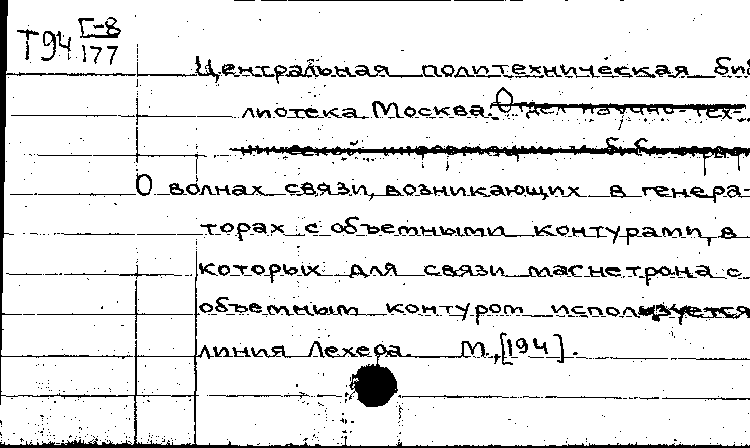 Т94 Г-8
177
Центральная политехническая биб
лиотека Москва. Отдел научно-тех-
нической информации и библиограф
О волнах связи, возникающих в генера-
торах с объемными контурами, в
которых для связи магнетрона с
объемным контуром используется
линия Лехера. М., [194].